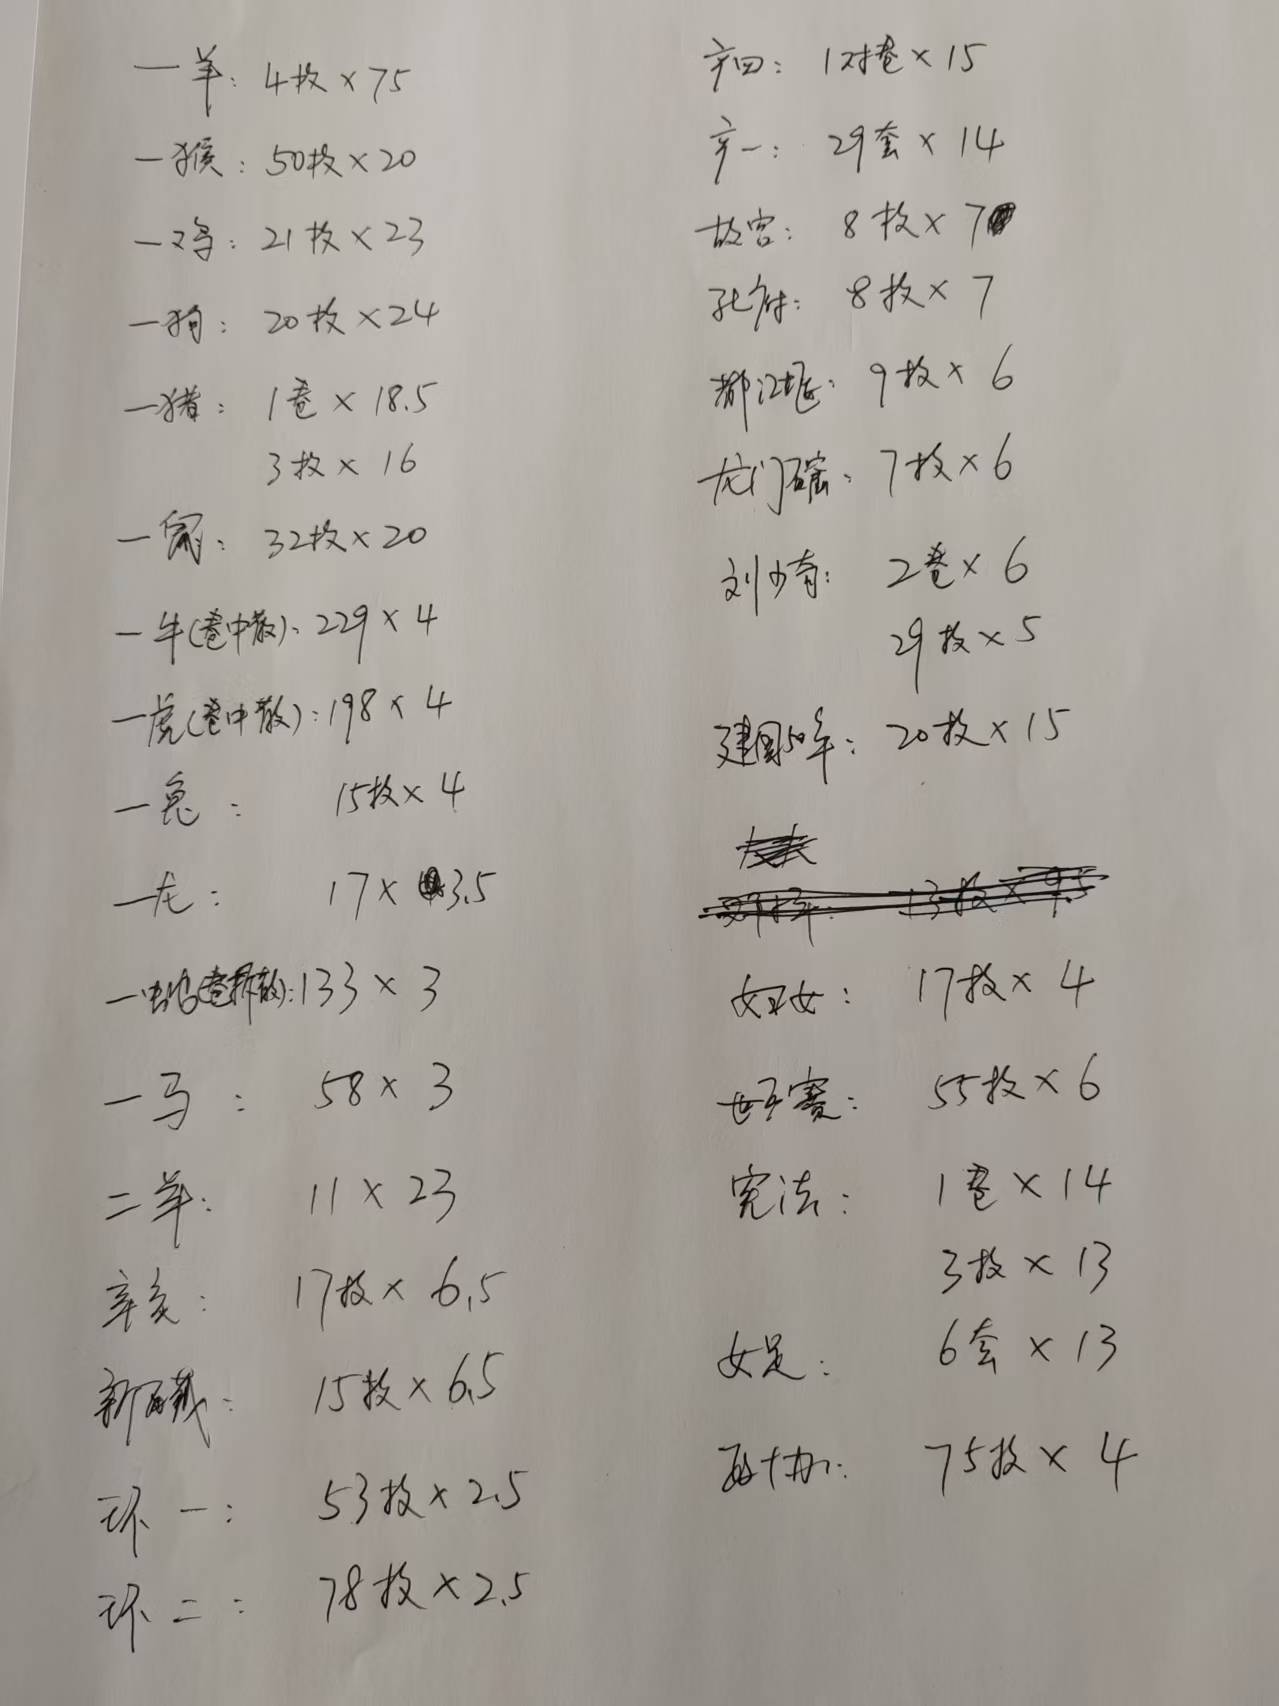 一羊: 4枚×75
一猴: 50枚×20
一鸡: 21枚×23
一狗: 20枚×24
一猪: 1卷×18.5
3枚×16
一鼠: 32枚×20
一牛(卷中散): 229×4
一虎(卷中散): 198×4
一兔: 15枚×4
一龙: 17×3.5
一蛇(卷拆散): 133×3
一马: 58×3
二羊: 11×23
辛亥: 17枚×6.5
新西藏: 15枚×6.5
环一: 53枚×2.5
环二: 78枚×2.5
字四: 1对卷×15
字一: 29套×14
故宫: 8枚×7
孔府: 8枚×7
都江堰: 9枚×6
龙门石窟: 7枚×6
刘少奇: 2卷×6
29枚×5
建国50年: 20枚×15
妇女: 17枚×4
世乒赛: 55枚×6
宪法: 1卷×14
3枚×13
女足: 6套×13
政协: 75枚×4